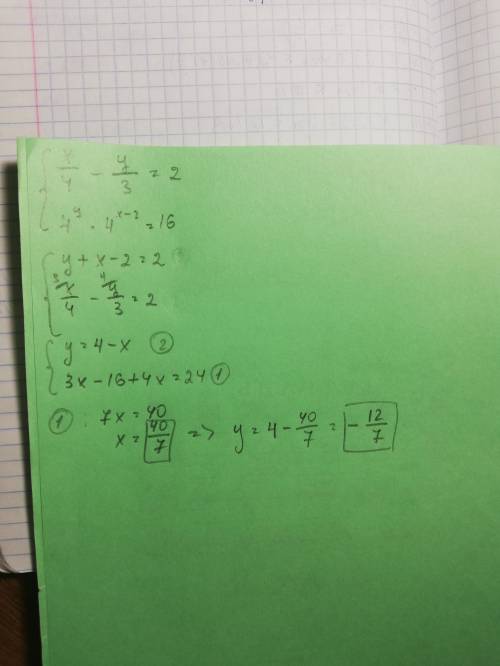 x/4 - y/3 = 2
4^y · 4^(x-2) = 16
y + x - 2 = 2
3 x/4 - 4 y/3 = 2
y = 4 - x ②
3x - 16 + 4x = 24 ①
① : 7x = 40
x = 40/7 => y = 4 - 40/7 = - 12/7